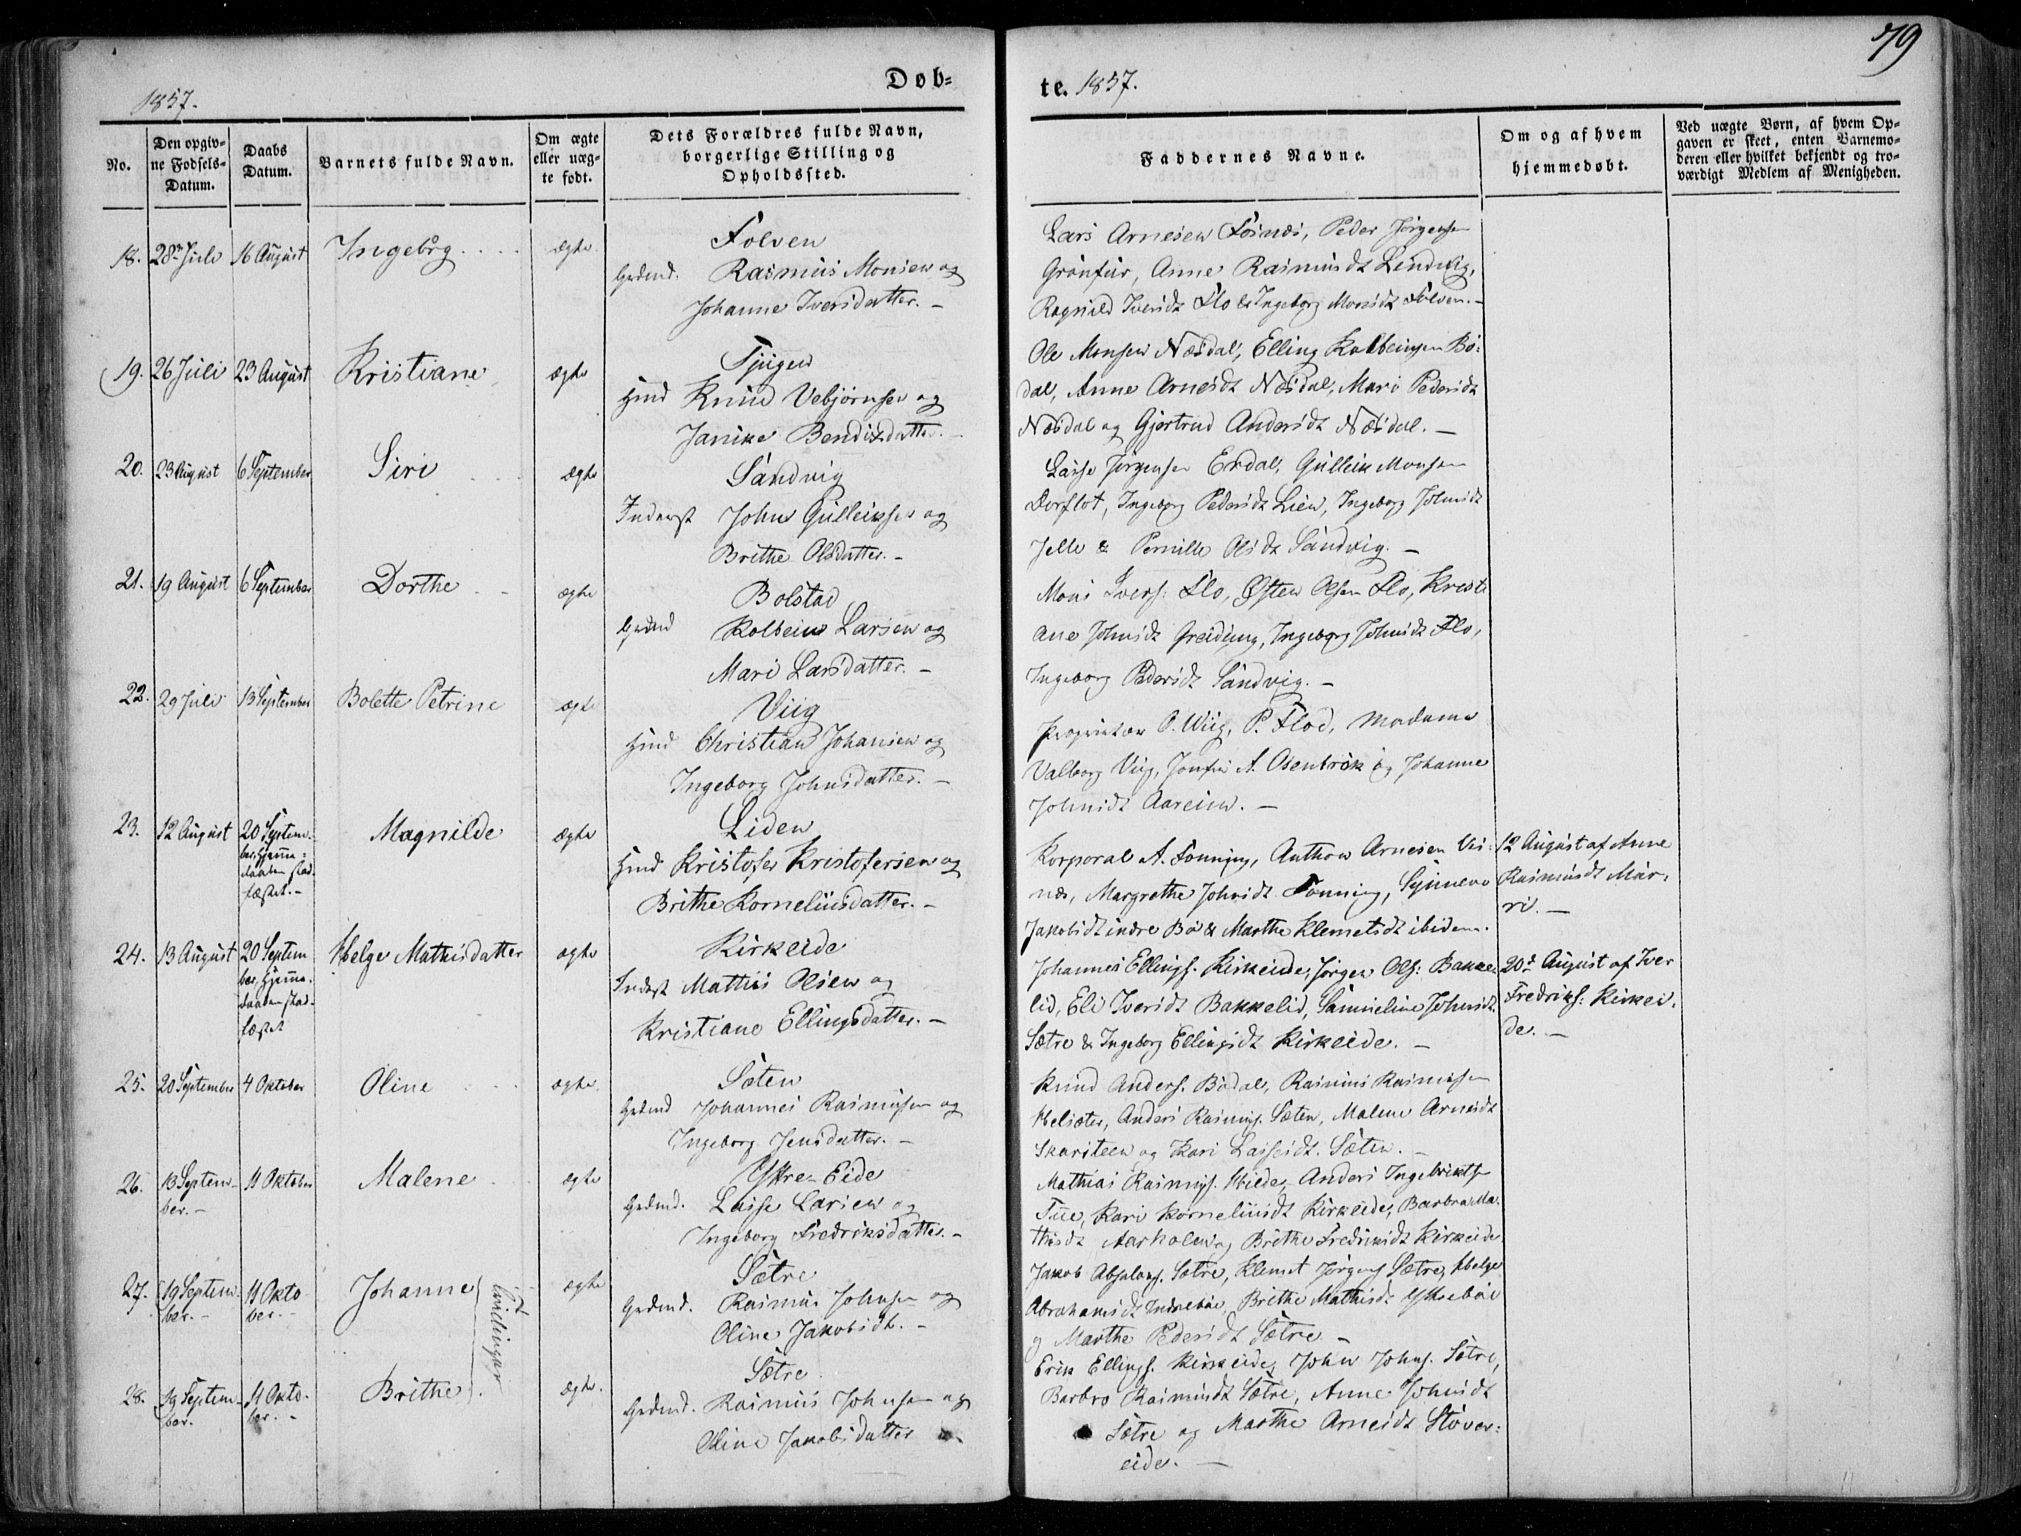 79
Døb=
te. 1857.
1857.
No.
Den opgiv-
ne Fødsels-
Datum.
Daabs
Datum.
Barnets fulde Navn.
Om ægte
eller uæg-
te født.
Dets Forældres fulde Navn,
borgerlige Stilling og
Opholdssted.
Faddernes Navne.
Om og af hvem
hjemmedøbt.
Ved uægte Børn, af hvem Op-
gaven er skeet, enten Barnemo-
deren eller hvilket bekjendt og tro-
værdigt Medlem af Menigheden.
18. 28 Juli 16 August Ingebrg ægte
Folven
Grdmd. Rasmus Monsen og
Johanne Iversdatter. -
Lars Arnesen Fosnæs, Peder Jørgensen
Grønfur, Anne Rasmusdt Lindvig,
Ragnild Iversdt Flo & Ingeborg Monsdt Folven. -
19. 26 Juli 23 August Kristiane ægte
Tjugen
Hmd Knud Vebjørnsen og
Janike Bendixdatter.
Ole Monsen Næsdal, Elling Kolbeinsen Bø-
dal, Anne Arnesdt Næsdal, Mari Pedersdt
Næsdal og Gjertrud Andersdt Næsdal. -
20. 23 August 6 September Siri ægte
Sandvig
Inderst John Gulleiksen og
Brithe Olsdatter. -
Lasse Jørgensen Erdal, Gulleik Monsen
Dorflot, Ingeborg Pedersdt Lien, Ingeborg Johnsdt
Jelle & Pernille Olsdt Sandvig. -
21. 19 August 6 September Dorthe ægte
Bolstad
Grdmd Kolbein Larsen og
Mari Larsdatter. -
Mons Ivers. Flo, Østen Olsen Flo, Kristi
ane Johnsdt Greidung, Ingeborg Johnsdt Flo,
Ingeborg Pedersdt Sandvig. -
22. 29 Juli 13 September Bolette Petrine ægte
Viig
Hmd Christian Johansen og
Ingeborg Johnsdatter. -
Proprietær P. Wiig, P. Flod, Madame
Valborg Viig, Jomfru A. Osenbrok og Johanne
Johnsdt Aareien. -
23. 12 August 20 Septem-
ber, Hjemme-
daaben stad-
fæstet. -
Magnilde ægte
Liden
Hmd Kristofer Kristofersen og
Brithe Korneliusdatter. -
Korporal A. Tonning, Anthon Arnesen Vis-
næs, Margrethe Johnsdt Tonning, Synneve
Jakobsdt indre Bø & Marthe Klemetsdt ibidem.
12 August af Anne
Rasmusdt Mar-
ri. -
24. 13 August 20 Septem
ber, Hjemme-
daaben stad-
fæstet
Helge Mathisdatter ægte
Kirkeide
Inderst Mathis Olsen og
Kristiane Ellingsdatter. -
Johannes Ellings. Kirkeide, Jørgen Ols: Bakke-
lid, Eli Iversdt Bakkelid, Samueline Johnsdt.
Sætre & Ingeborg Ellingsdt Kirkeide. -
20d August af Iver
Fredriks: Kirkei-
de. -
25. 20 September 4 Oktober Oline ægte.
Sæten
Grdmd Johannes Rasmusen og
Ingeborg Jensdatter. -
Knud Anders. Bødal, Rasmus Rasmusen
Helsæter, Anders Rasmus. Sæten, Malene Arnesdt
Skarsteen og Kari Lassesdt. Sæten. -
26. 13 Septem-
ber. -
11 Oktober Malene ægte
Yttre Eide
Grdmd. Lasse Larsen og
Ingeborg Fredriksdatter. -
Mathias Rasmus. Hilde, Anders Ingebriktsen
Tue, Kari Korneliusdt Kirkeide, Barbra Ma-
thisdt Aarholen og Brithe Fredriksdt Kirkeide
27. 19 Septem-
ber. -
11 Okto-
ber. -
Johanne ægte
Tvillinger
Sætre
Grdmd. Rasmus Johnsen og
Oline Jakobsdt. -
Jakob Absalons. Sætre, Klemet Jørgens Sætre, Helge
Abrahamsdt Indrebøe, Brithe Mathisdt Yttrebøe
og Marthe Pedersdt Sætre -
28. 19 Septem-
ber.
11 Okto-
ber. -
Brithe. ægte.
Sætre
Grdmd. Rasmus Johnsen og
Oline Jakobsdatter
Erik Ellings. Kirkeide, John Johns. Sætre,
Barbro Rasmusdt Sætre, Anne Johnsdt
Sætre og Marthe Arnesdt Støver-
eide. -